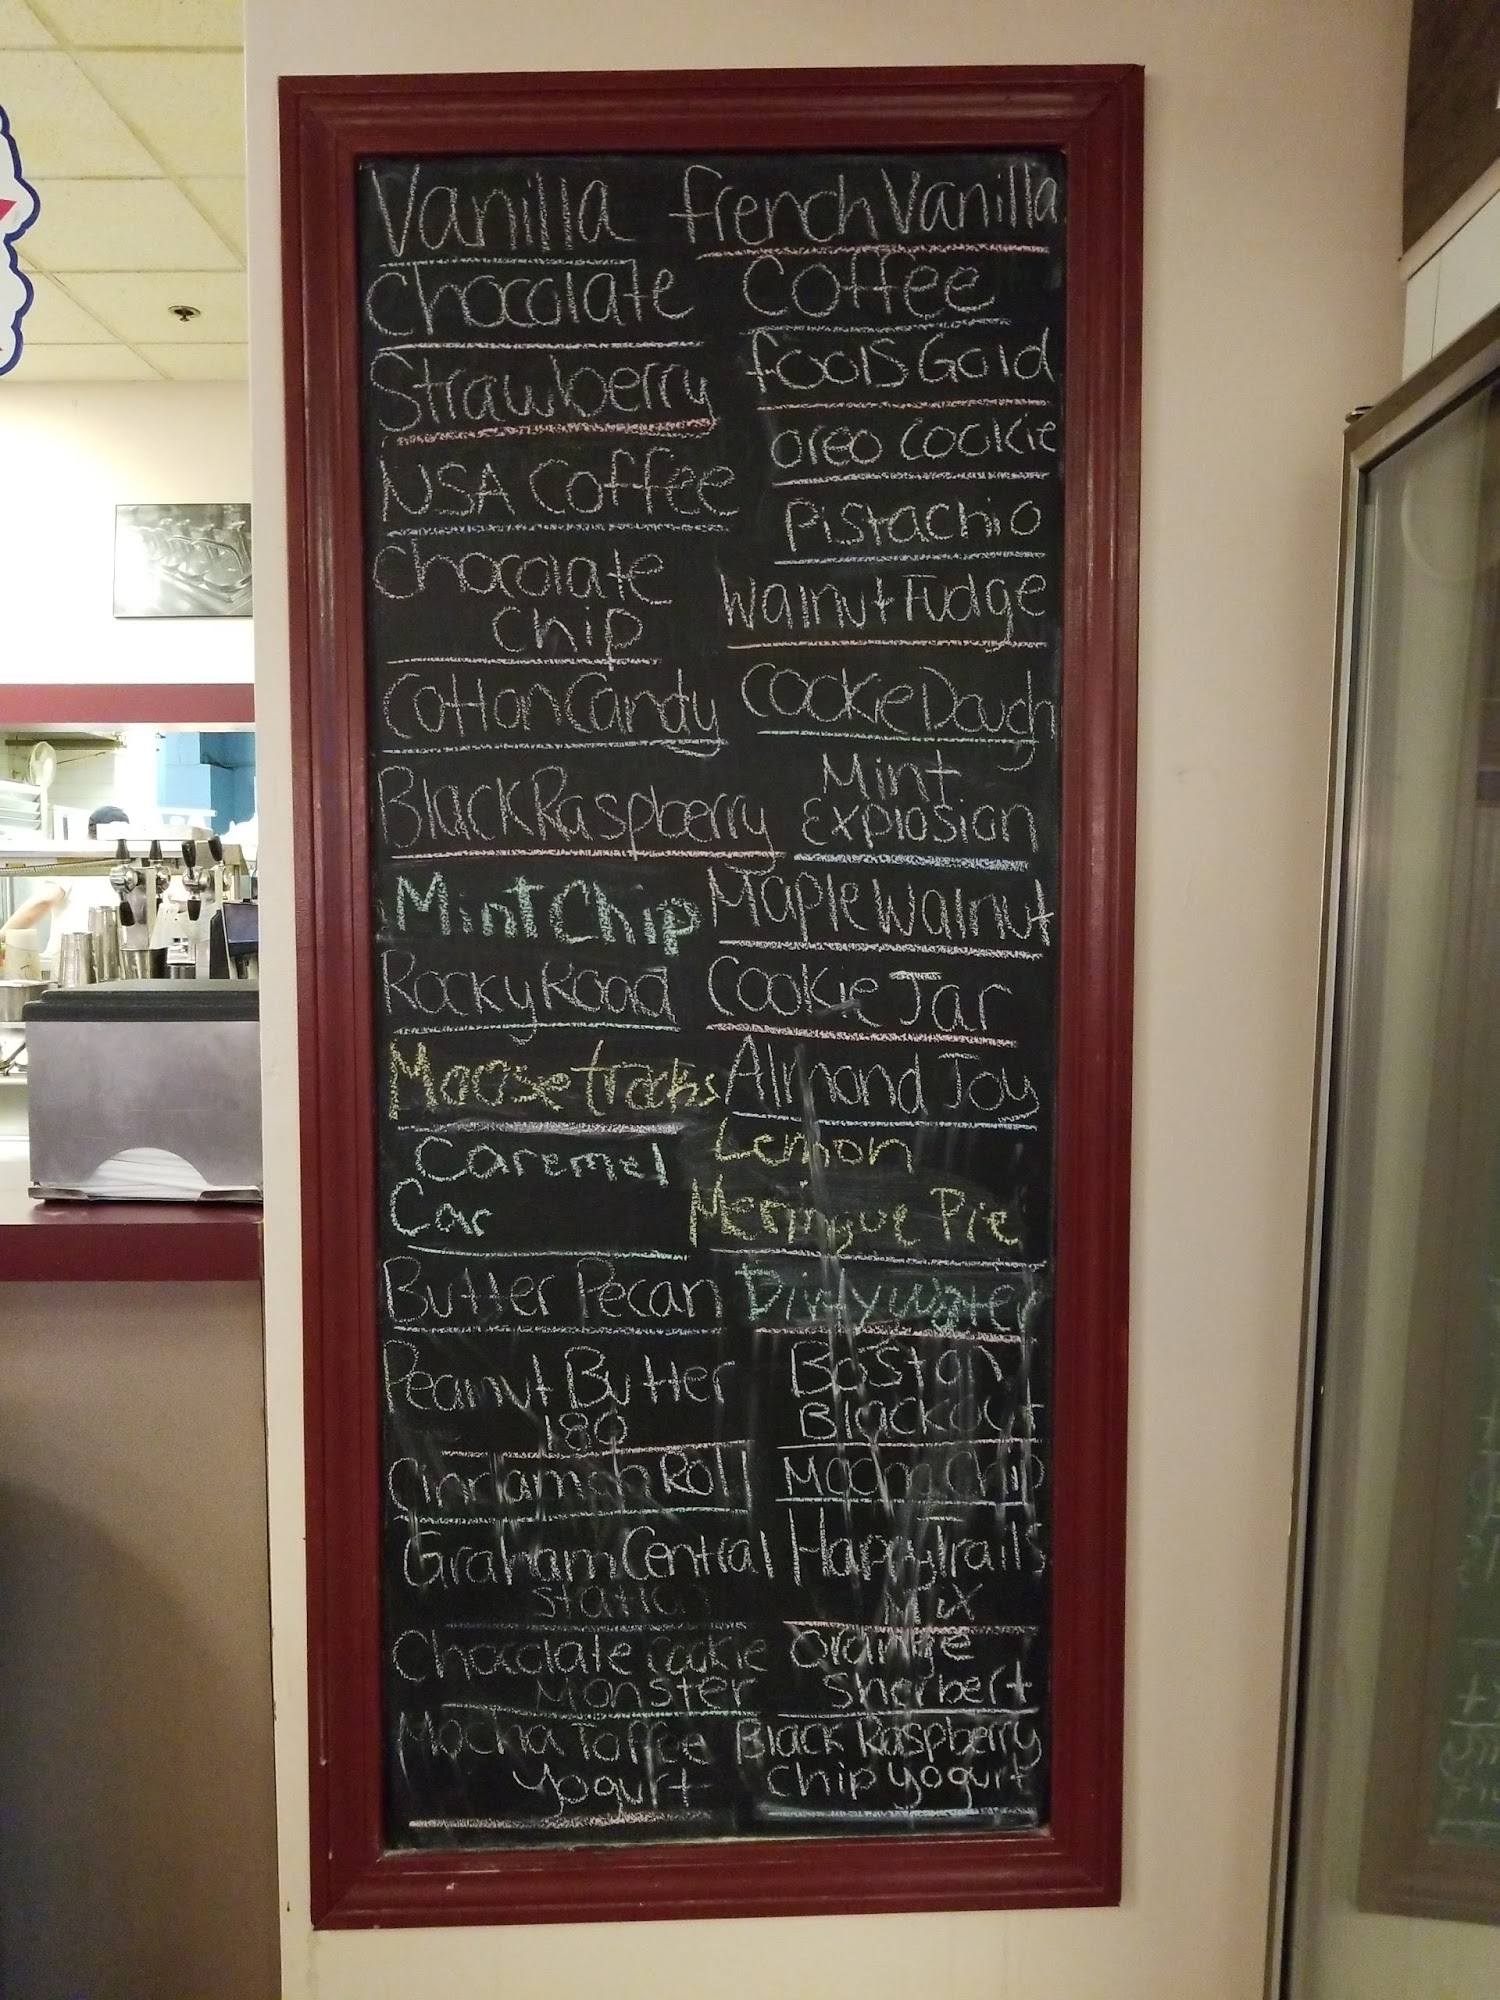 Vanilla
Chocolate
Strawberry
NSA Coffee
Chocolate
Chip
Cotton Candy
Black Raspberry
Mint Chip
Rocky Road
Moose tracks
Caremel
Car
Butter Pecan
Peanut Butter
180
Cinnamon Roll
Graham Central
Station
Chocolate Cookie
Monster
Mocha Toffee
Yogurt
french Vanilla
Coffee
fools Gold
oreo cookie
Pistachio
Walnut Fudge
Cookie Dough
Mint
Explosion
Maple Walnut
Cookie Jar
Almond Joy
Lemon
Meringue Pie
Dirty water
Boston
Blackout
Mocha Chip
Happy Trails
Mix
Orange
Sherbert
Black Raspberry
Chip Yogurt